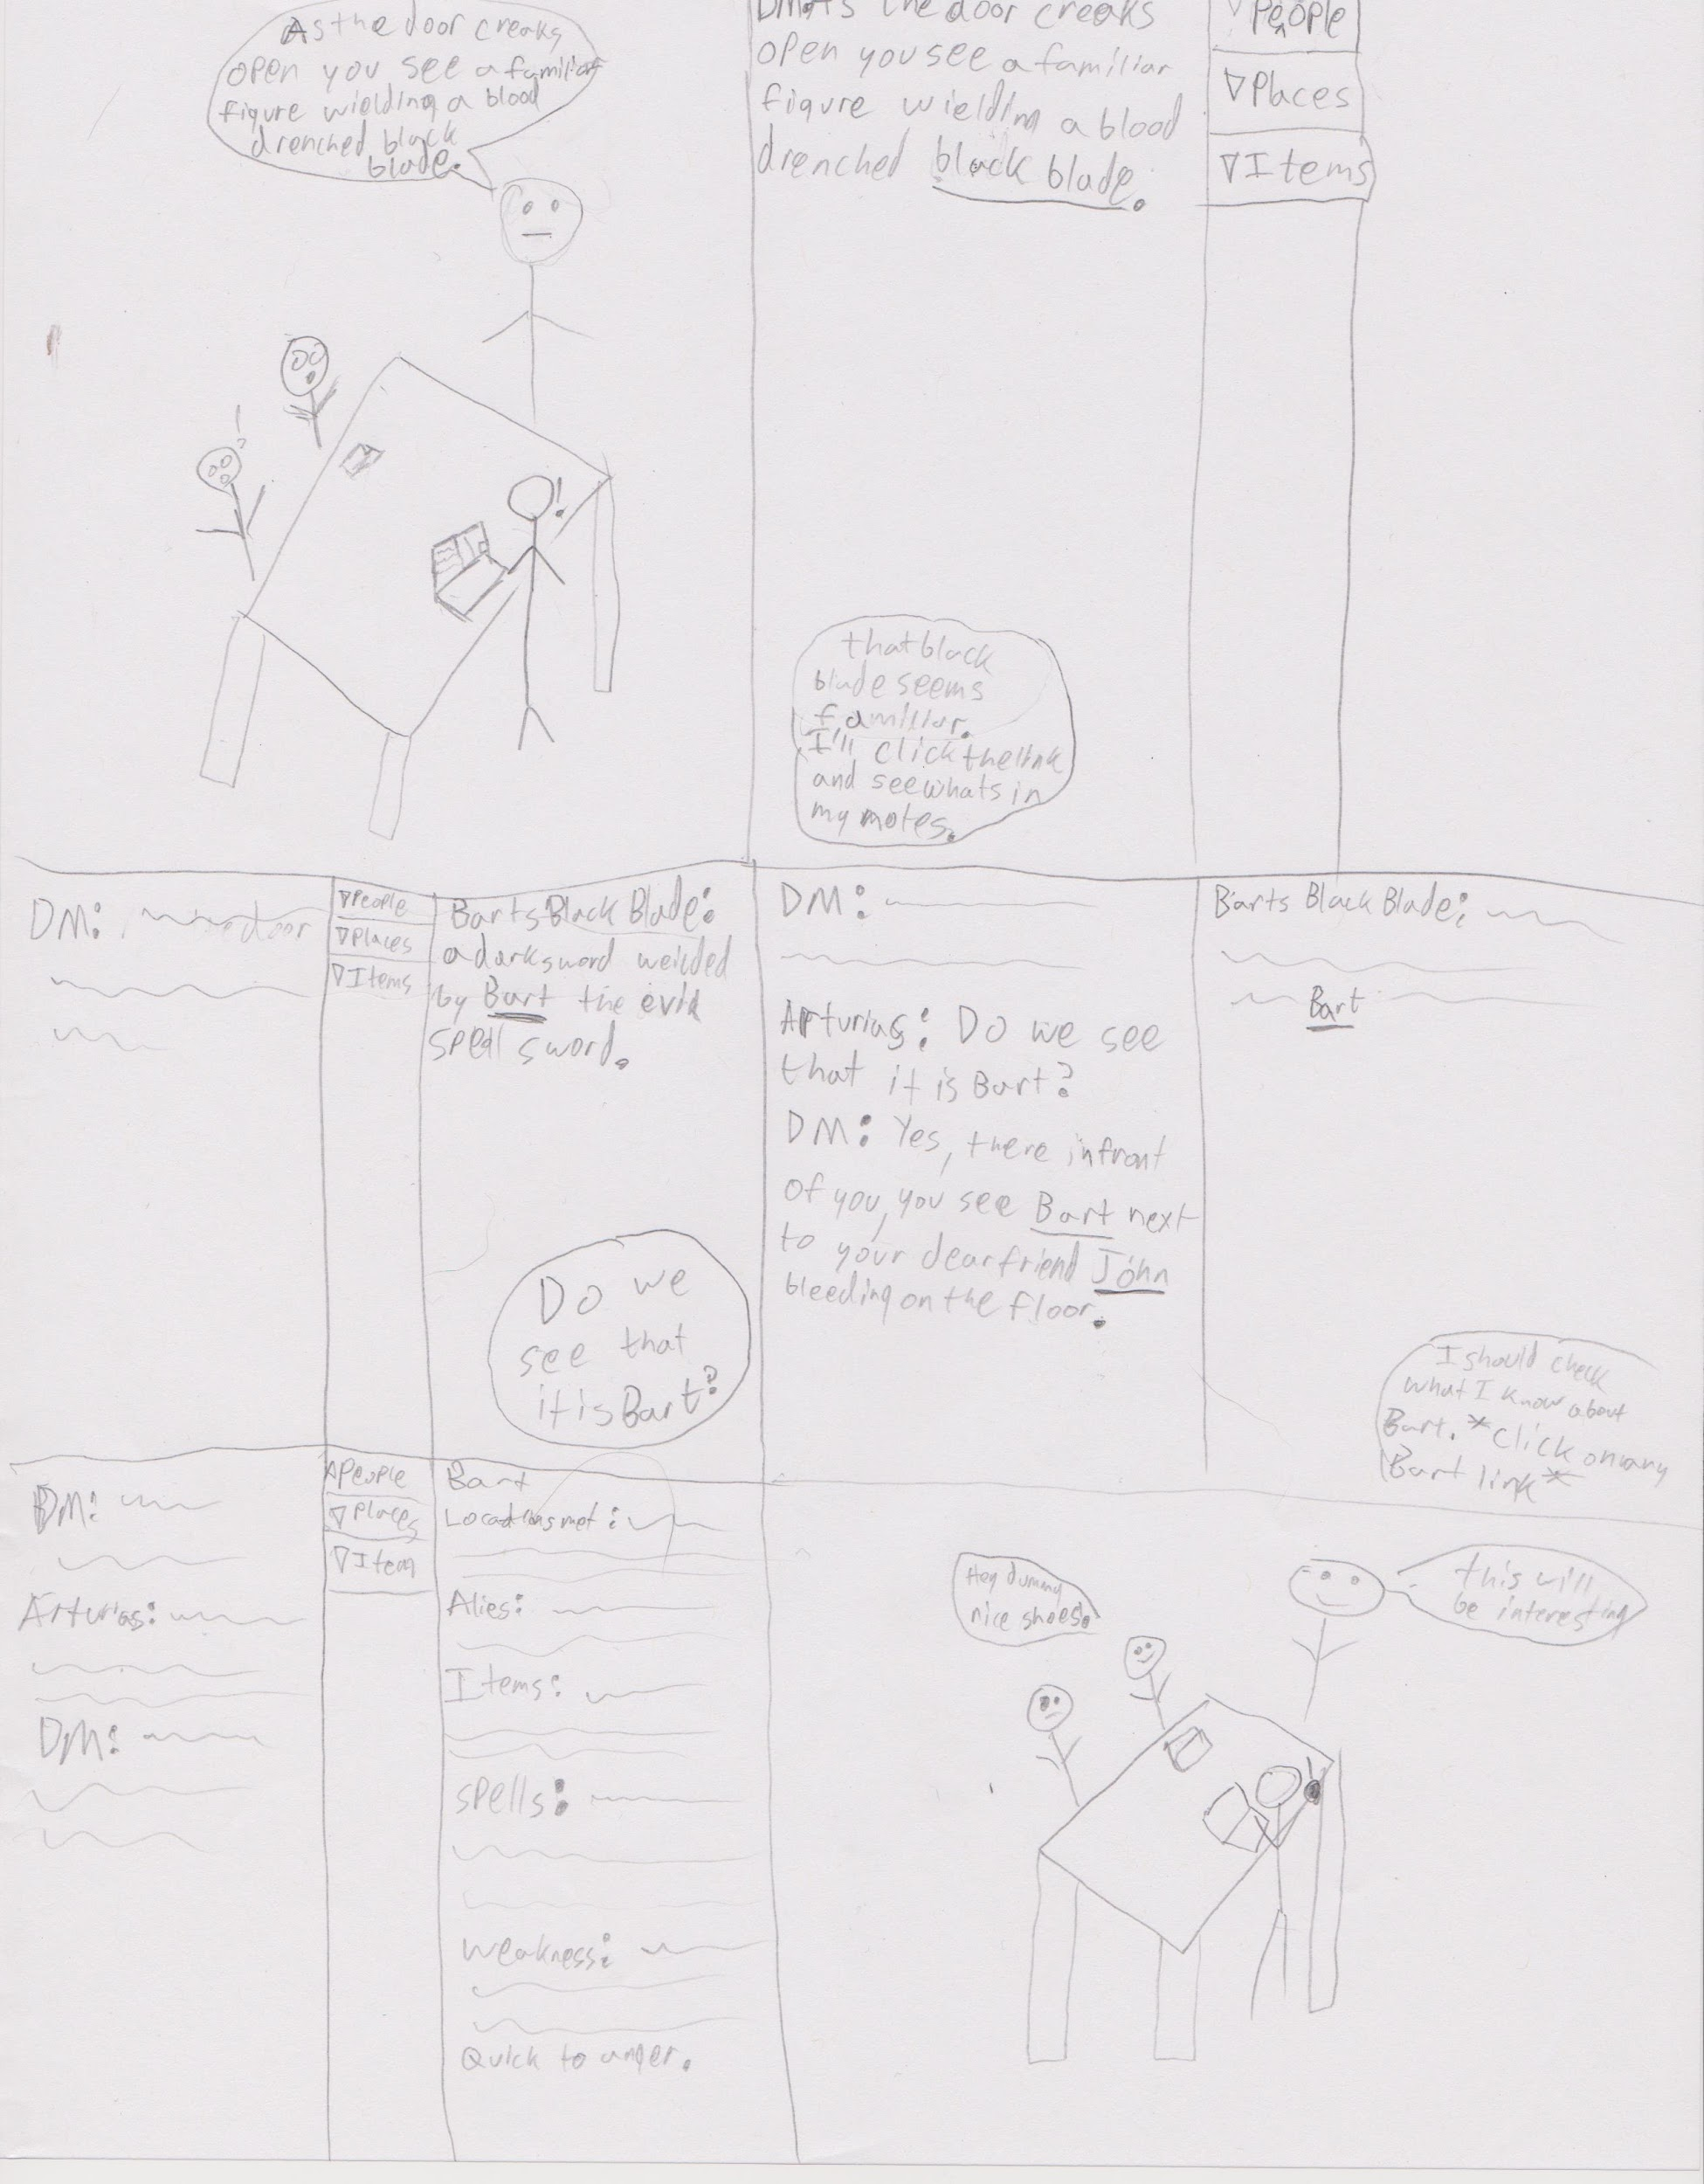 As the door creaks
open you see a familiar
figure wielding a blood
drenched black
blade.
DM: As the door creaks
open you see a familiar
figure wielding a blood
drenched black blade.
▽People
▽Places
▽Items
that black
blade seems
familiar.
I'll click the link
and see whats in
my motes.
DM: door
▽People
▽Places
▽Items
Barts Black Blade:
a dark sword weilded
by Bart the evil
spell sword.
Do we
see that
it is Bart?
DM:
Arturias: Do we see
that it is Bart?
DM: Yes, there infront
of you, you see Bart next
to your dear friend John
bleeding on the floor.
Barts Black Blade:
Bart
I should check
what I know about
Bart. *click on any
Bart link*
DM:
Arturias:
DM:
△People
▽Places
▽Item
Bart
Locations met:
Alies:
Items:
spells:
weakness:
Quick to anger.
Hey dummy
nice shoes.
this will
be interesting